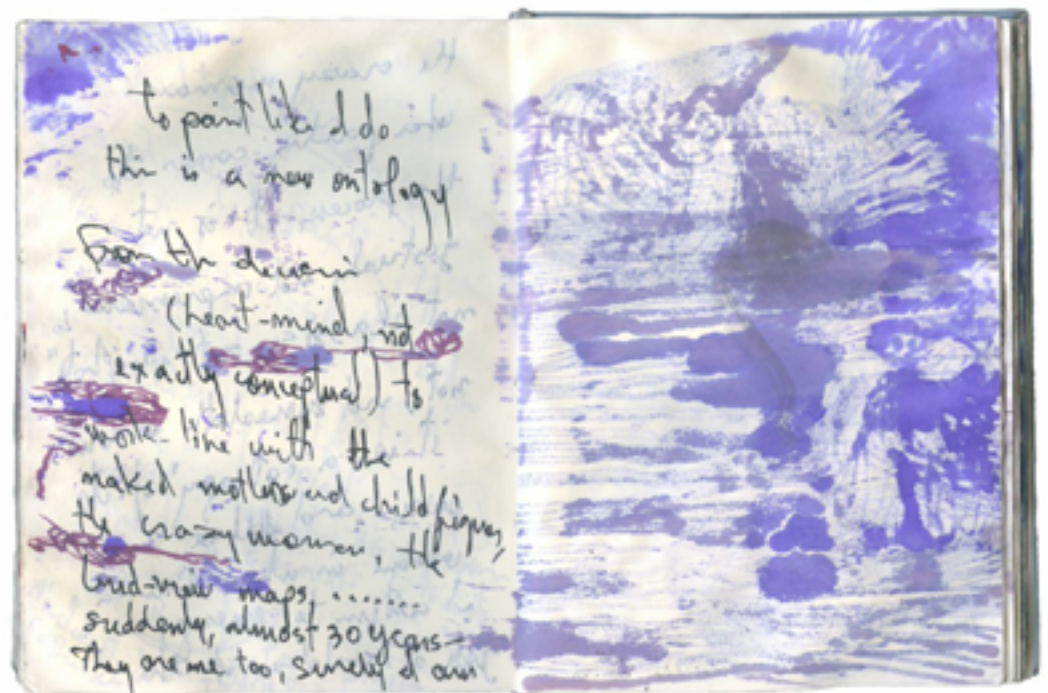 to paint like I do
this is a new ontology
From the
(heart-mind, not
exactly conceptual) to
work-line with the
naked mothers and child figures,
the crazy woman, the
bird-view maps, .......
suddenly, almost 30 years -
They are me too, surely I am